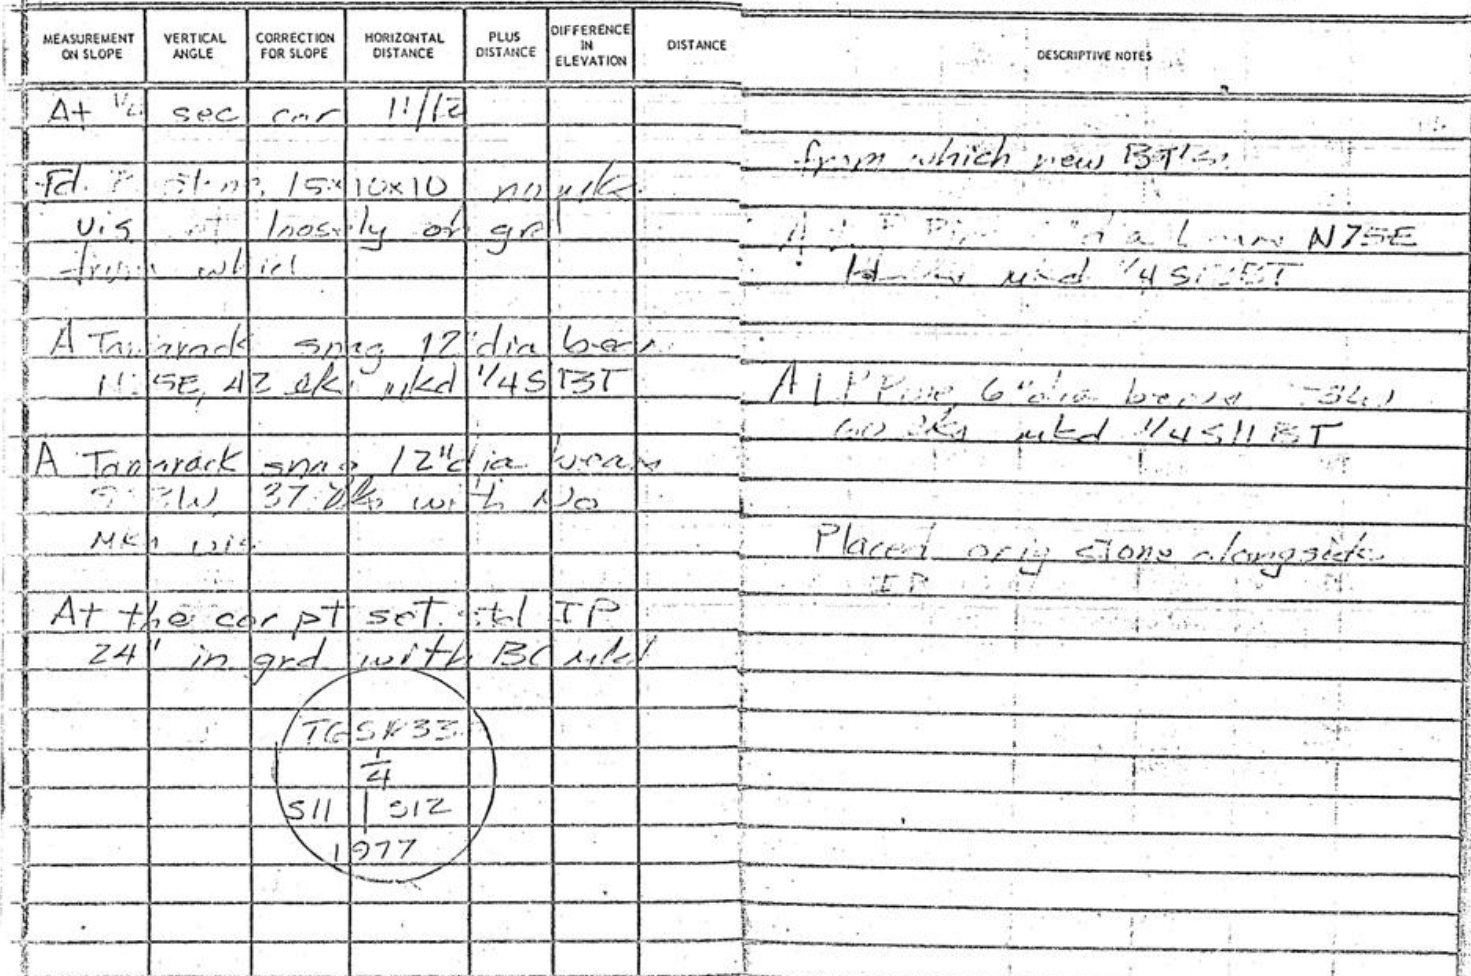 MEASUREMENT ON SLOPE VERTICAL ANGLE CORRECTION FOR SLOPE HORIZONTAL DISTANCE PLUS DISTANCE DIFFERENCE IN ELEVATION DISTANCE
At 1/4 sec cor 11/12
Fd. 15x10x10 no mks
vis loosely on grd
from which
A Tamarack snag 12" dia bears
42 lks mkd 1/4 S BT
A Tamarack snag 12" dia bears
37 lks with No
Mks vis
At the cor pt set std IP
24" in grd with BC mkd
T6S R33
1/4
S11 | S12
1977
DESCRIPTIVE NOTES
from which new BT's
A N75E
mkd 1/4 S12 BT
A L P Pine, 6" dia bears
lks mkd 1/4 S11 BT
Placed orig stone alongside
IP